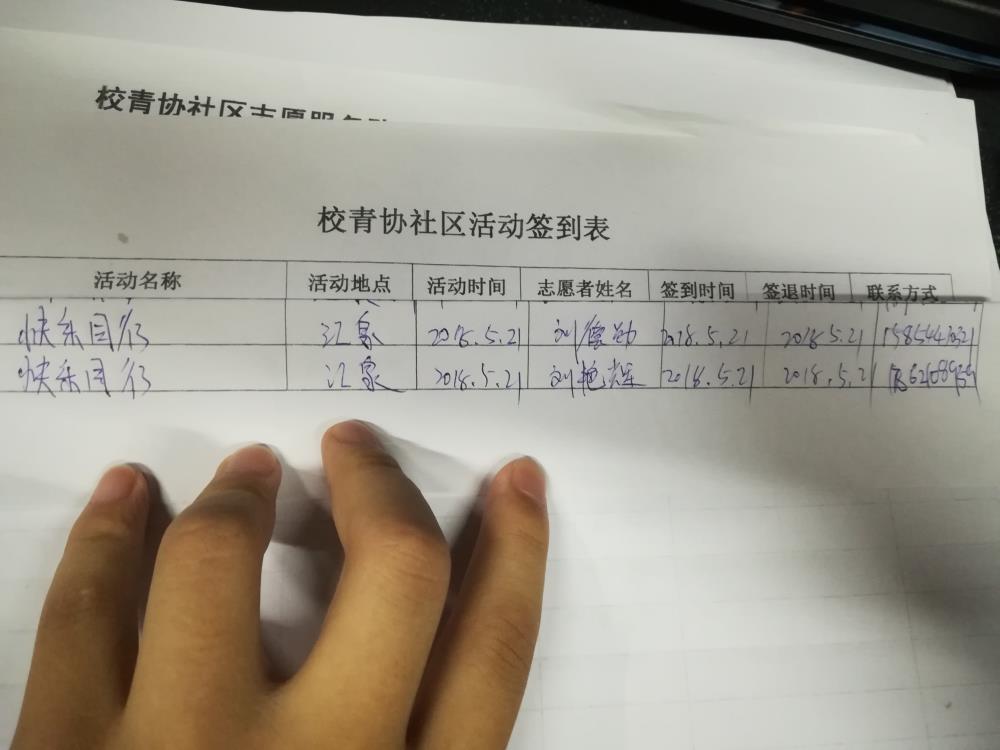 校青协社区志愿服务
校青协社区活动签到表
活动名称 活动地点 活动时间 志愿者姓名 签到时间 签退时间 联系方式
快乐同行 汇泉 2018.5.21 刘德勋 2018.5.21 2018.5.21
快乐同行 汇泉 2018.5.21 刘艳辉 2018.5.21 2018.5.21